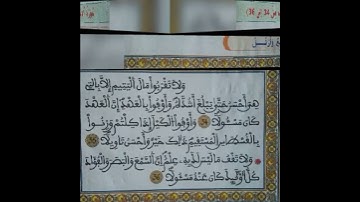 وَلَا تَقْرَبُوا۟ مَالَ ٱلْيَتِيمِ إِلَّا بِالَّتِے
هِىَ أَحْسَنُ حَتَّىٰ يَبْلُغَ أَشُدَّهُۥ وَأَوْفُوا۟ بِالْعَهْدِ إِنَّ ٱلْعَهْدَ
كَانَ مَسْـُٔولًا 34 وَأَوْفُوا۟ ٱلْكَيْلَ إِذَا كِلْتُمْ وَزِنُوا۟
بِالْقُسْطَاسِ ٱلْمُسْتَقِيمِ ذَٰلِكَ خَيْرٌ وَأَحْسَنُ تَأْوِيلًا 35
وَلَا تَقْفُ مَا لَيْسَ لَكَ بِهِۦ عِلْمٌ إِنَّ ٱلسَّمْعَ وَالْبَصَرَ وَالْفُؤَادَ
كُلُّ أُو۟لَٰٓئِكَ كَانَ عَنْهُ مَسْـُٔولًا 36